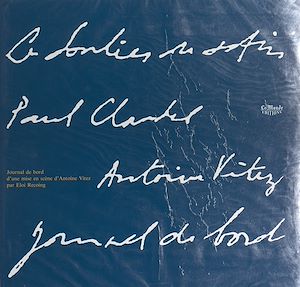 Le Soulier de satin
Paul Claudel
Le Monde
EDITIONS
Antoine Vitez
Journal de bord
d'une mise en scène d'Antoine Vitez
par Eloi Recoing
journal de bord